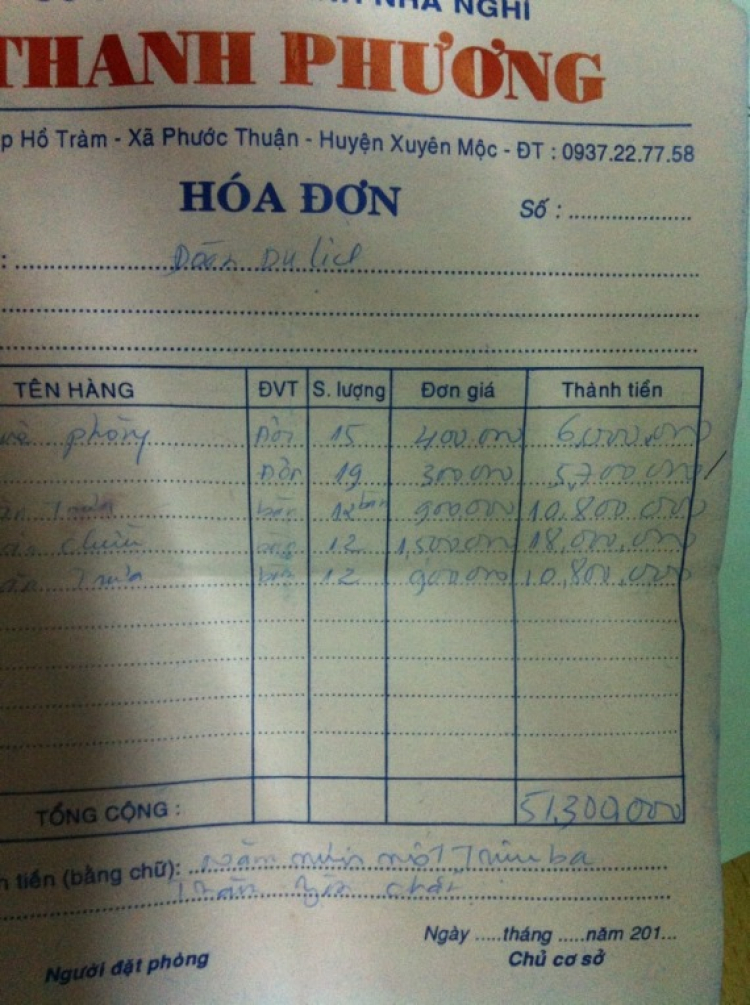 NHÀ NGHỈ
THANH PHƯƠNG
p Hồ Tràm - Xã Phước Thuận - Huyện Xuyên Mộc - ĐT : 0937.22.77.58
HÓA ĐƠN
Số : ....................
: Đoàn Du lịch
TÊN HÀNG ĐVT S. lượng Đơn giá Thành tiền
phòng 15 400.000 6,000.000
19 300 000 5,700 000
bàn 12 bàn 900000 10,800 000
chiều 12 1,500 000 18,000,000
12 900 000 10,800,000
TỔNG CỘNG : 51,300,000
n tiền (bằng chữ): Năm mươi một Triệu ba
Trăm ngàn chẵn
Ngày .....tháng .....năm 201...
Người đặt phòng Chủ cơ sở